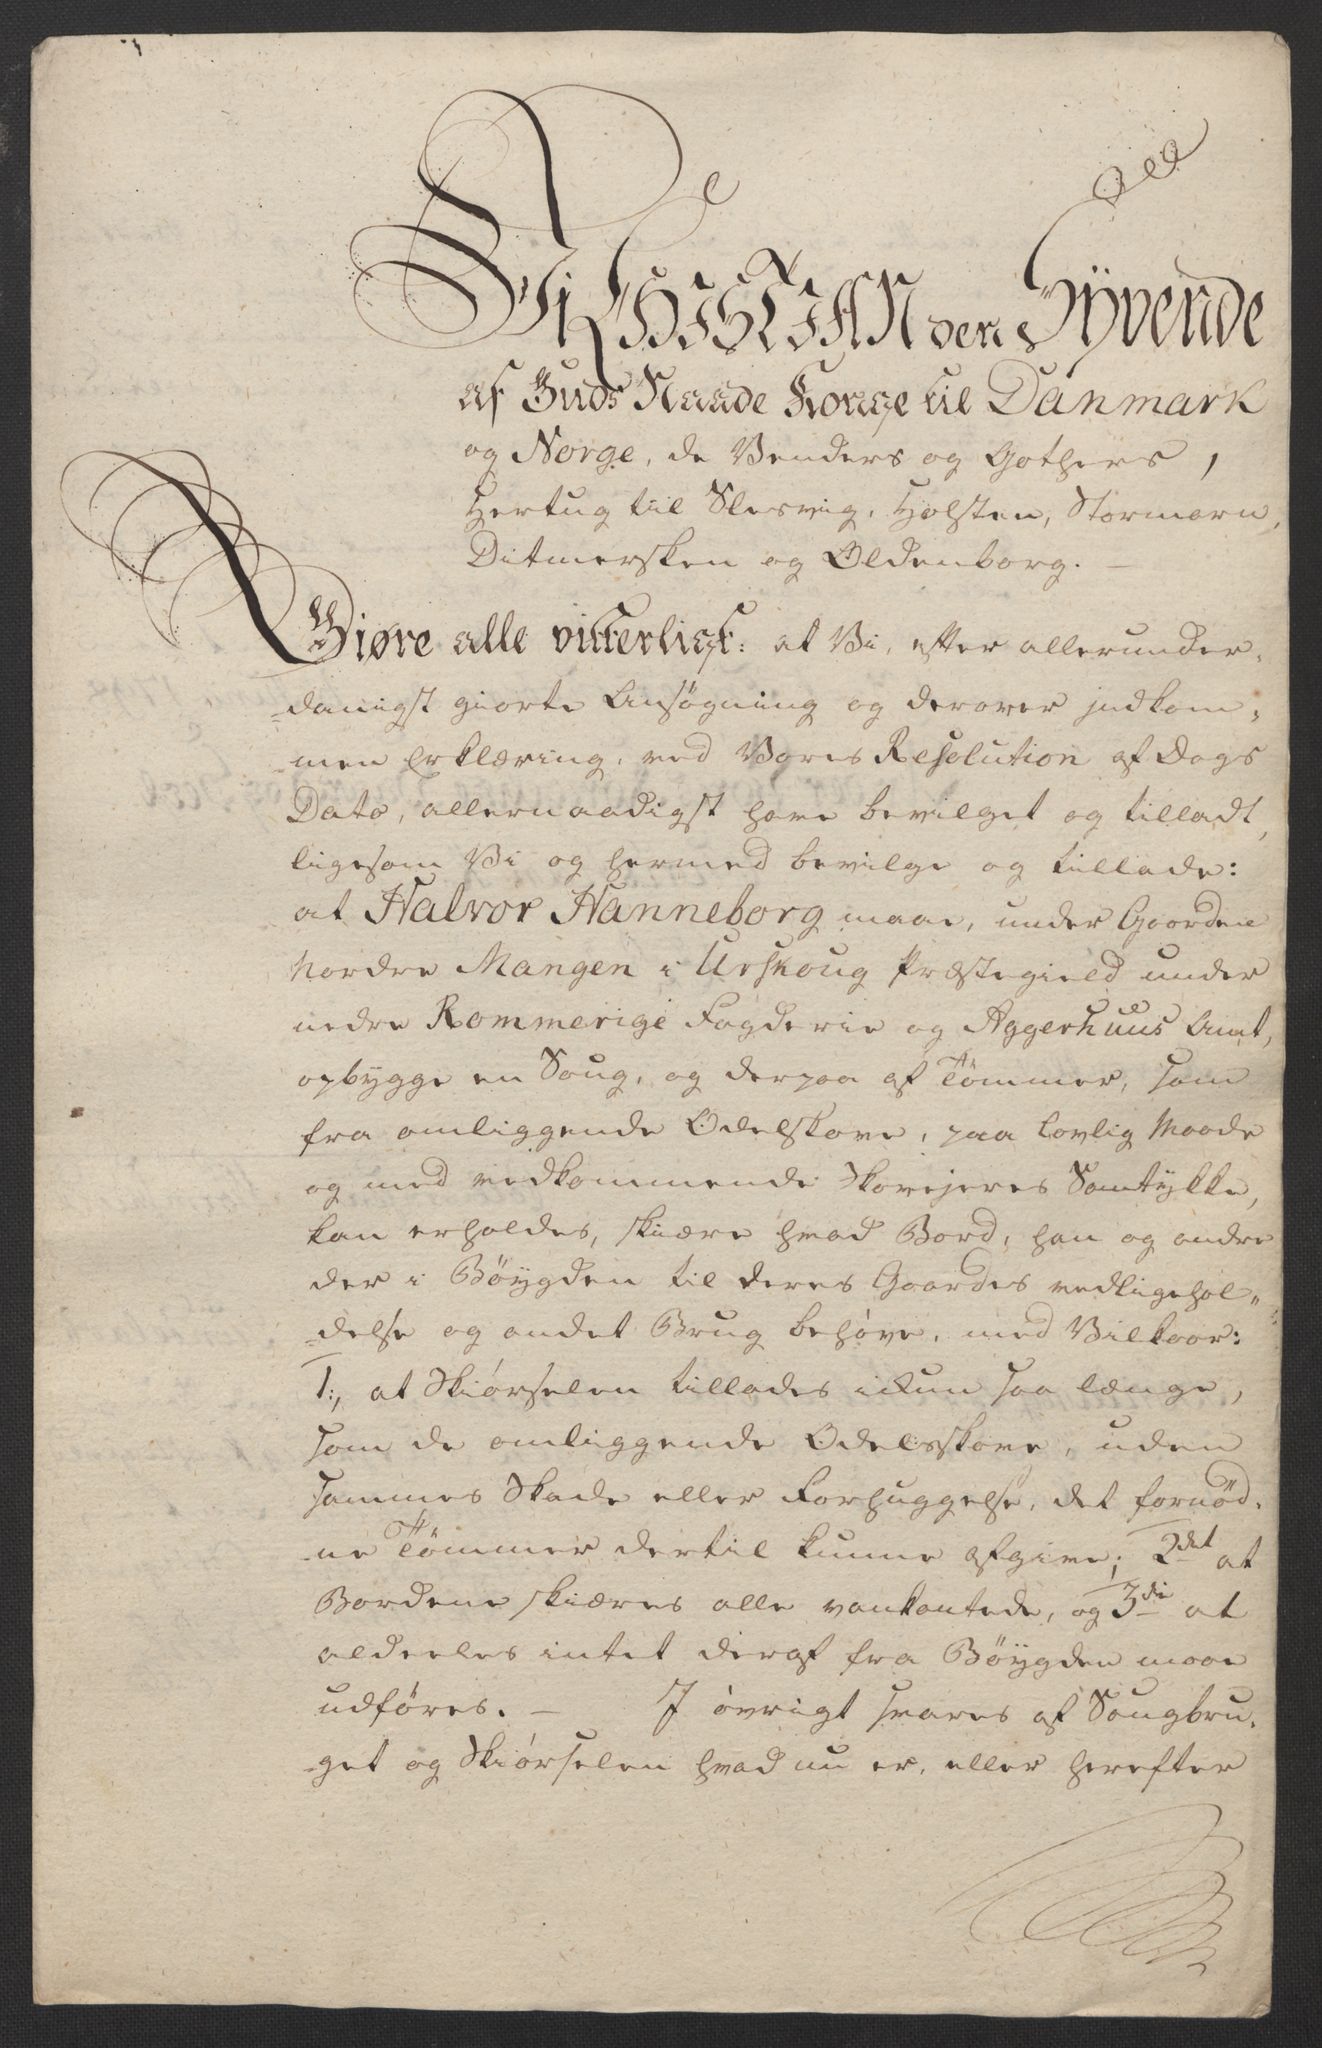 CHRISTIAN den Syvende
af Guds Naade Konge til Danmark
og Norge, de Venders og Gothers,
Hertug til Slesvig, Holsten, Stormarn,
Ditmersken og Oldenborg. —
Giøre alle vitterligt: at Vi, efter allerunder-
-danigst giorte Ansøgning og derover indkom-
-men Erklæring, ved Vores Resolution af Dags
Dato, allernaadigst have bevilget og tilladt,
ligesom Vi og hermed bevilge og tillade:
at Halvor Hanneborg maae, under Gaarden
Nordre Mangen i Urskoug Præstegield under
nedre Rommerige Fogderie og Aggerhuus Amt,
opbygge en Saug, og derpaa af Tömmer, som
fra omliggende Odelskove, paa lovlig Maade
og med vedkommende Skovejeres Samtykke,
kan erholdes, skiære hvad Bord, han og andre
der i Böygden til deres Gaardes vedligehol-
-delse og andet Brug behøve, med Vilkaar:
1., at Skiørselen tillades ickun saa længe,
som de omliggende Odelsskove, uden
sammes Skade eller Forhuggelse, det fornöd-
-ne Tömmer dertil kunne afgive; 2det at
Bordene skiæres alle vankantede, og 3die at
aldeeles intet deraf fra Böygden maae
udföres. — I övrigt svares af Saugbru-
-get og Skiørselen hvad nu er, eller herefter